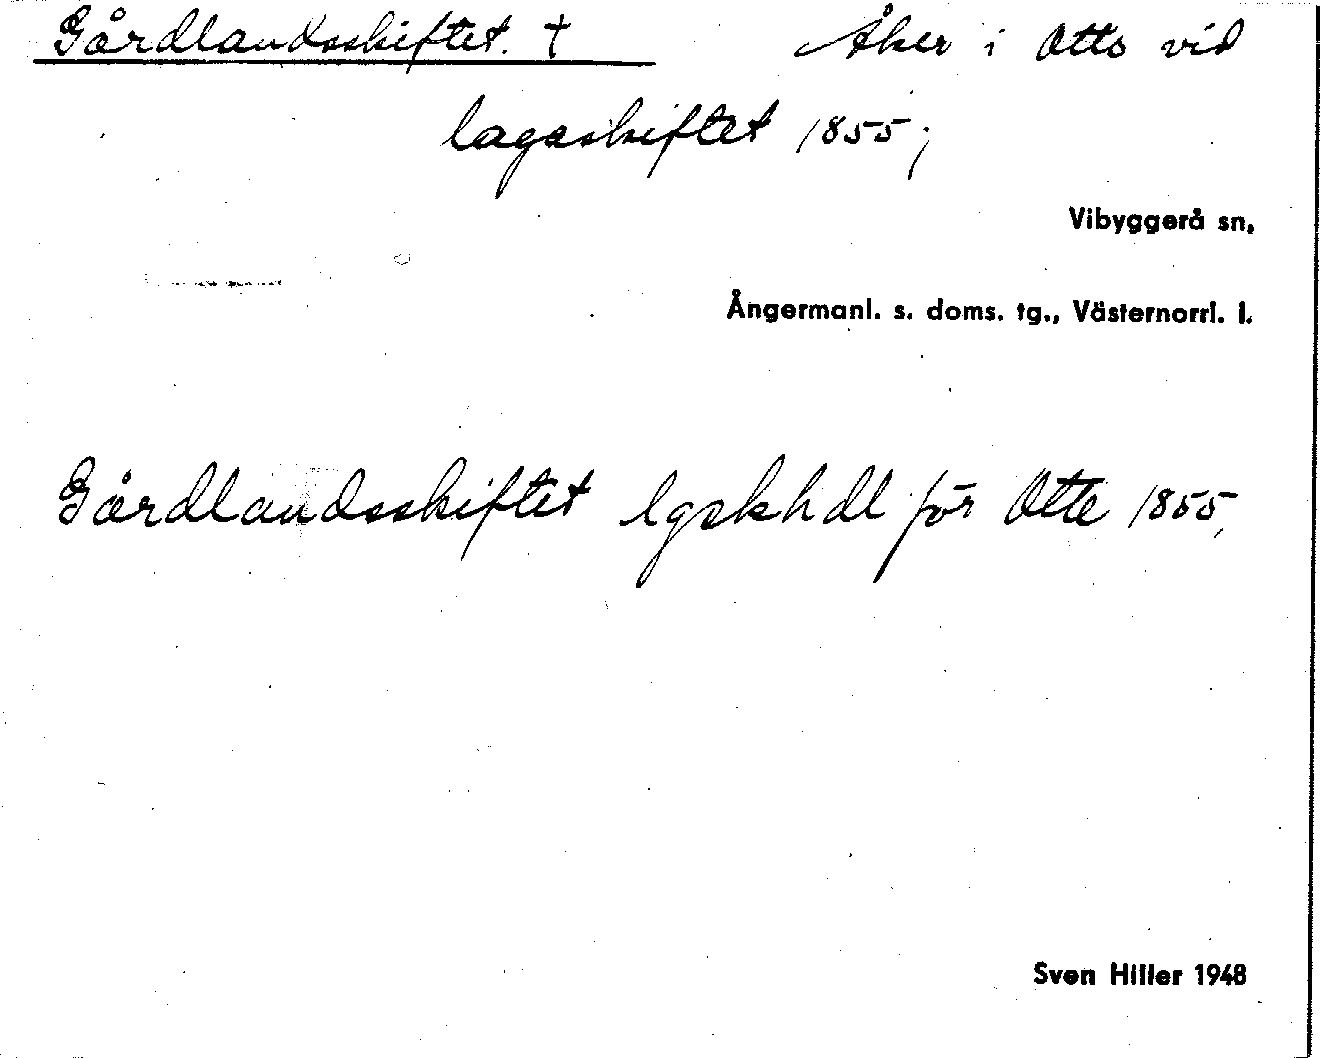 Gårdlandsskiftet. † Åker i Ottö vid
lagaskiftet 1855;
Vibyggerå sn,
Ångermanl. s. doms. tg., Västernorrl. l.
Gårdlandsskiftet lgskhdl för Otte 1855,
Sven Hiller 1948